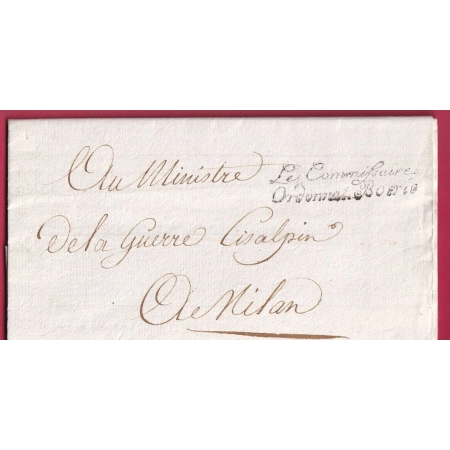 Le Commissaire
Ordonnat. Boerio
Au Ministre
De la Guerre Cisalpin
A Milan